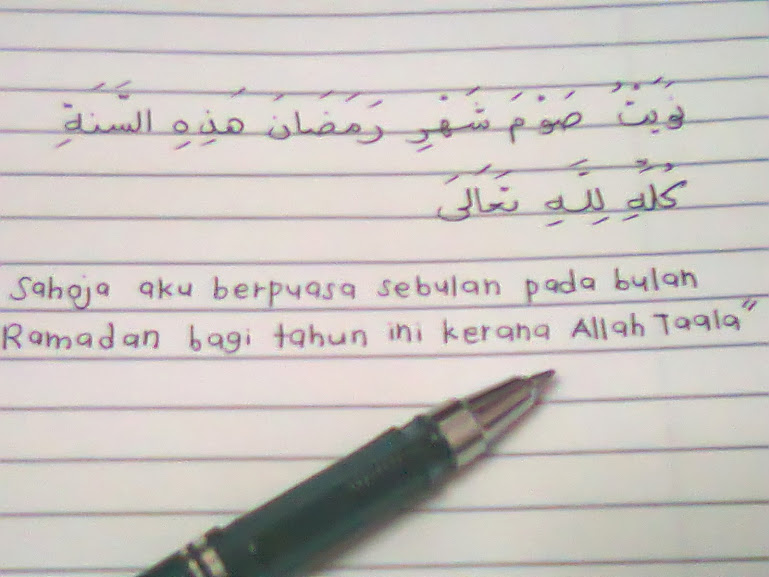 نَوَيْتُ صَوْمَ شَهْرِ رَمَضَانَ هَذِهِ السَّنَةِ
كُلِّهِ لِلَّهِ تَعَالَى
Sahaja aku berpuasa sebulan pada bulan
Ramadan bagi tahun ini kerana Allah Taala"